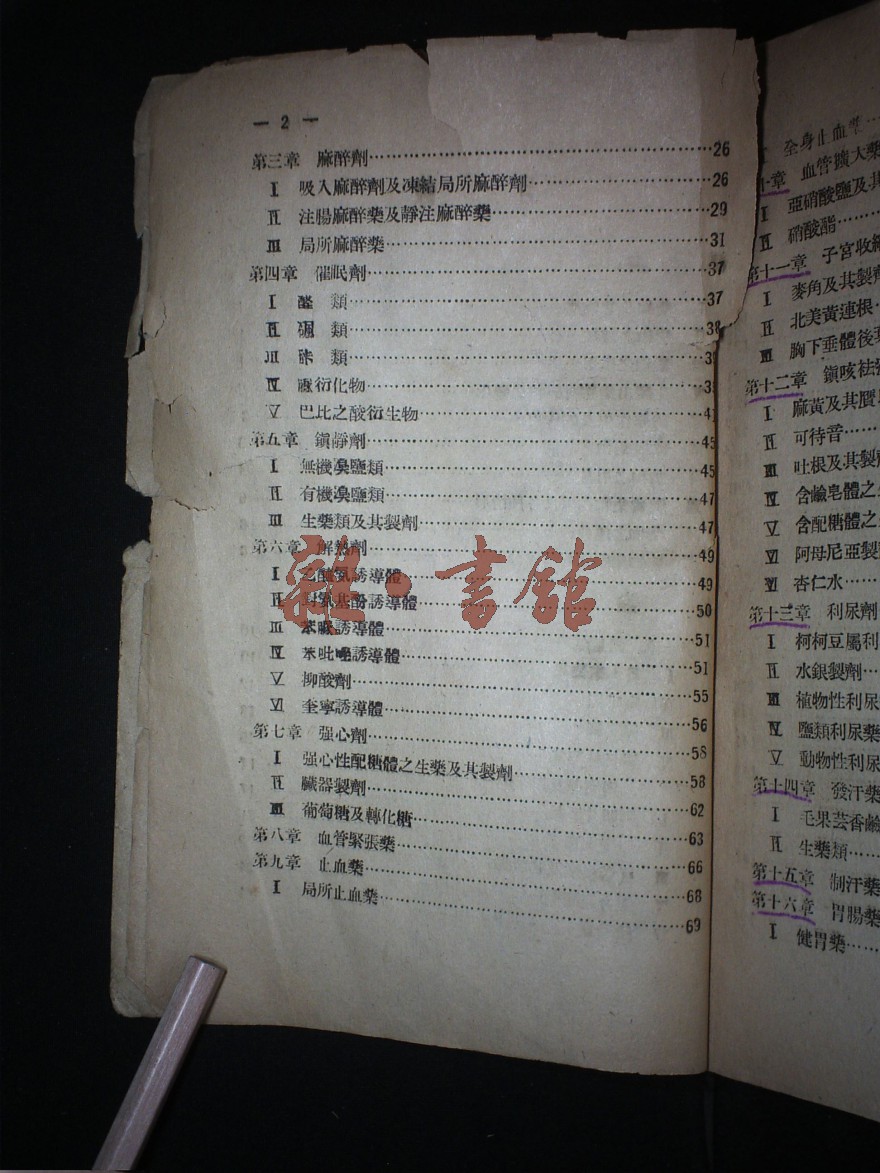 — 2 —
第三章 麻醉劑……26
Ⅰ 吸入麻醉劑及凍結局所麻醉劑……26
Ⅱ 注腸麻醉藥及靜注麻醉藥……29
Ⅲ 局所麻醉藥……31
第四章 催眠劑……37
Ⅰ 醛 類……37
Ⅱ 類……38
Ⅲ 類……
Ⅳ 衍化物……
Ⅴ 巴比之酸衍生物……41
第五章 鎮靜劑……45
Ⅰ 無機溴鹽類……45
Ⅱ 有機溴鹽類……47
Ⅲ 生藥類及其製劑……47
第六章 解熱劑……49
Ⅰ 乙醯氨誘導體……49
Ⅱ 對氨基酚誘導體……50
Ⅲ 苯誘導體……51
Ⅳ 苯吡唑誘導體……51
Ⅴ 柳酸劑……55
Ⅵ 奎寧誘導體……56
第七章 强心劑……58
Ⅰ 强心性配糖體之生藥及其製劑……58
Ⅱ 臟器製劑……62
Ⅲ 葡萄糖及轉化糖……63
第八章 血管緊張藥……66
第九章 止血藥……68
Ⅰ 局所止血藥……69
全身止血藥……
章 血管擴大藥
Ⅰ 亞硝酸鹽及其
Ⅱ 硝酸酯……
第十一章 子宮收縮
Ⅰ 麥角及其製劑
Ⅱ 北美黃連根
Ⅲ 腦下垂體後
第十二章 鎮咳祛
Ⅰ 麻黃及其
Ⅱ 可待音……
Ⅲ 吐根及其製劑
Ⅳ 含鹼皂體之
Ⅴ 含配糖體之
Ⅵ 阿母尼亞製
杏仁水……
第十三章 利尿劑
Ⅰ 柯柯豆屬利
Ⅱ 水銀製劑…
Ⅲ 植物性利尿
Ⅳ 鹽類利尿藥
Ⅴ 動物性利尿
第十四章 發汗藥
Ⅰ 毛果芸香鹼
Ⅱ 生藥類……
第十五章 制汗藥
第十六章 胃腸藥
Ⅰ 健胃藥……
雜·書館